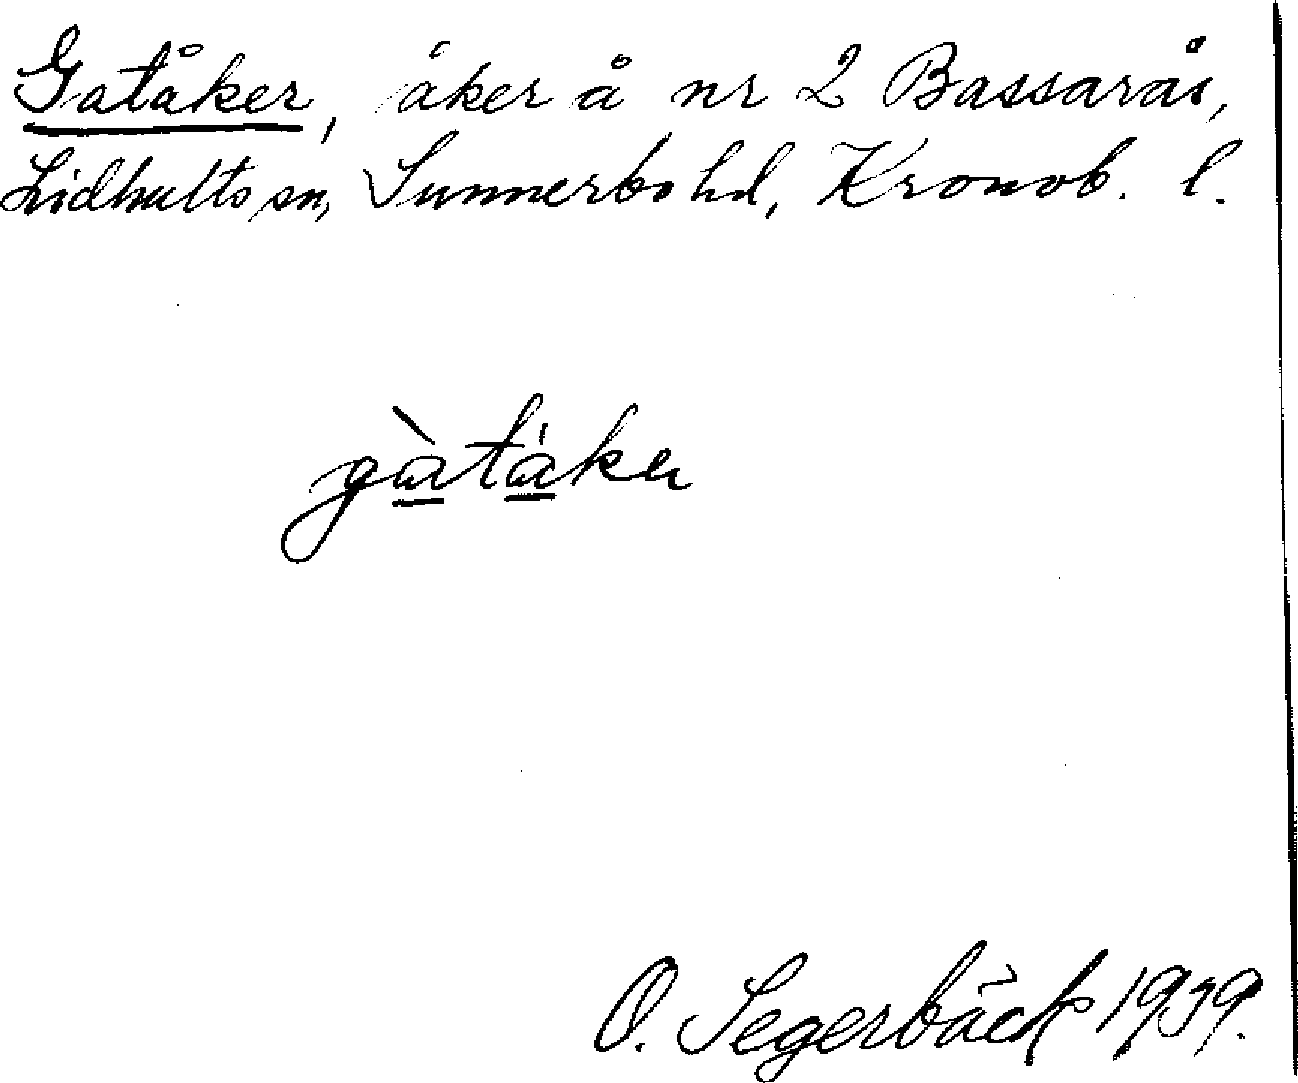 Gatåker, åker å nr 2 Bassarås,
Lidhults sn, Sunnerbo hd, Kronob. l.
gàtáker
O. Segerbäck 1939.